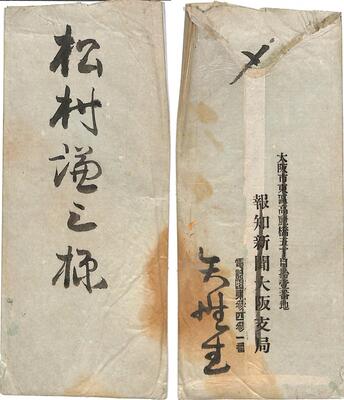 松村謙三様
〆
大阪市東區高麗橋五丁目拾壹番地
報知新聞大阪支局
矢性生